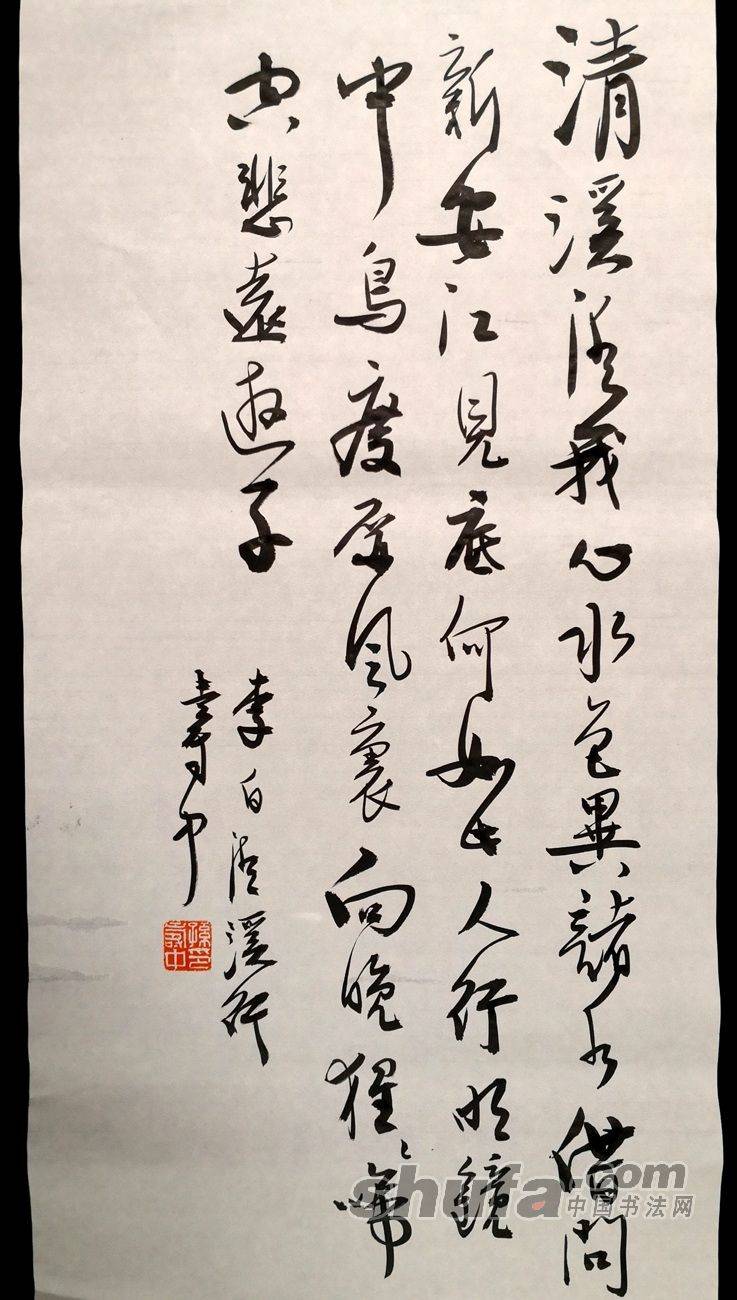 清溪清我心水色異諸水借問
新安江見底何如此人行明鏡
中鳥度屏風裏向晚猩〻啼
空悲遠遊子
李白清溪行
壽中
shufa.com
中国书法网